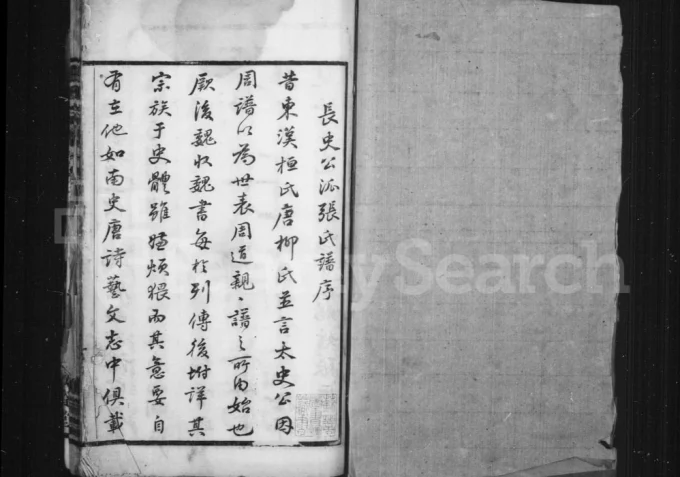 長史公派張氏譜序
昔東漢桓氏唐柳氏並言太史公因
周譜以為世表周道親〻譜之所由始也
厥後魏收魏書每於列傳後坿詳其
宗族于史體雖嫌煩猥而其意要自
有在他如南史唐詩藝文志中俱載
Search